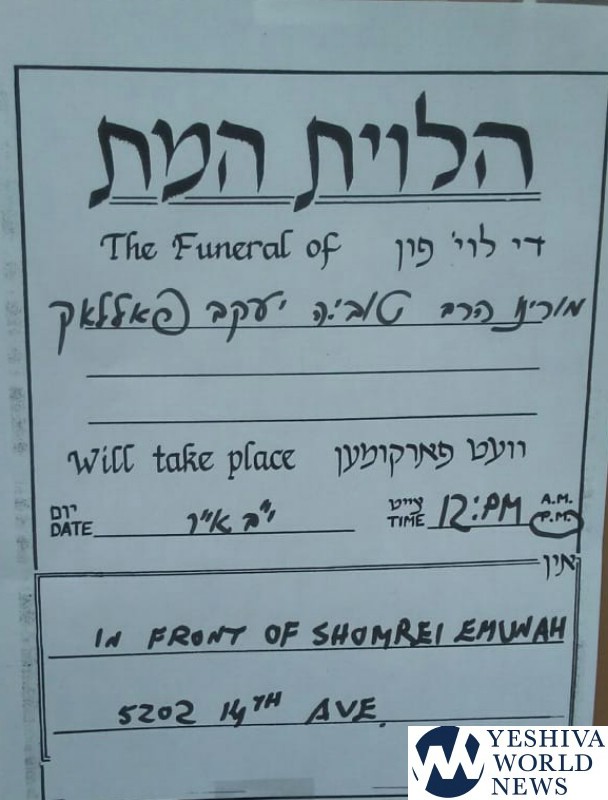 הלוית המת
The Funeral of די לוי' פון
מורינו הרב טובי'ה יעקב פאללאק
Will take place וועט פארקומען
יום DATE י"ב אי"ר צייט TIME 12:PM A.M. P.M.
אין
IN FRONT OF SHOMREI EMUNAH
5202 14TH AVE.
YESHIVA
WORLD
NEWS